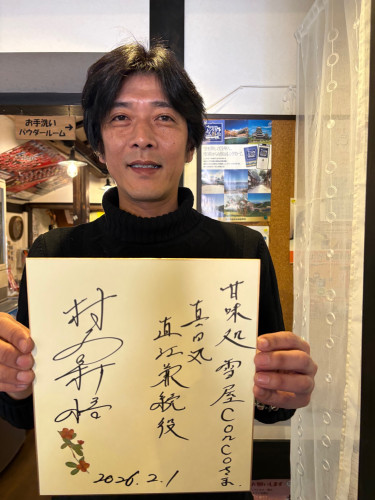 お手洗い →
パウダールーム
甘味処 雪屋CONCOさま
真田丸
直江兼続役
村上新悟
2026.2.1